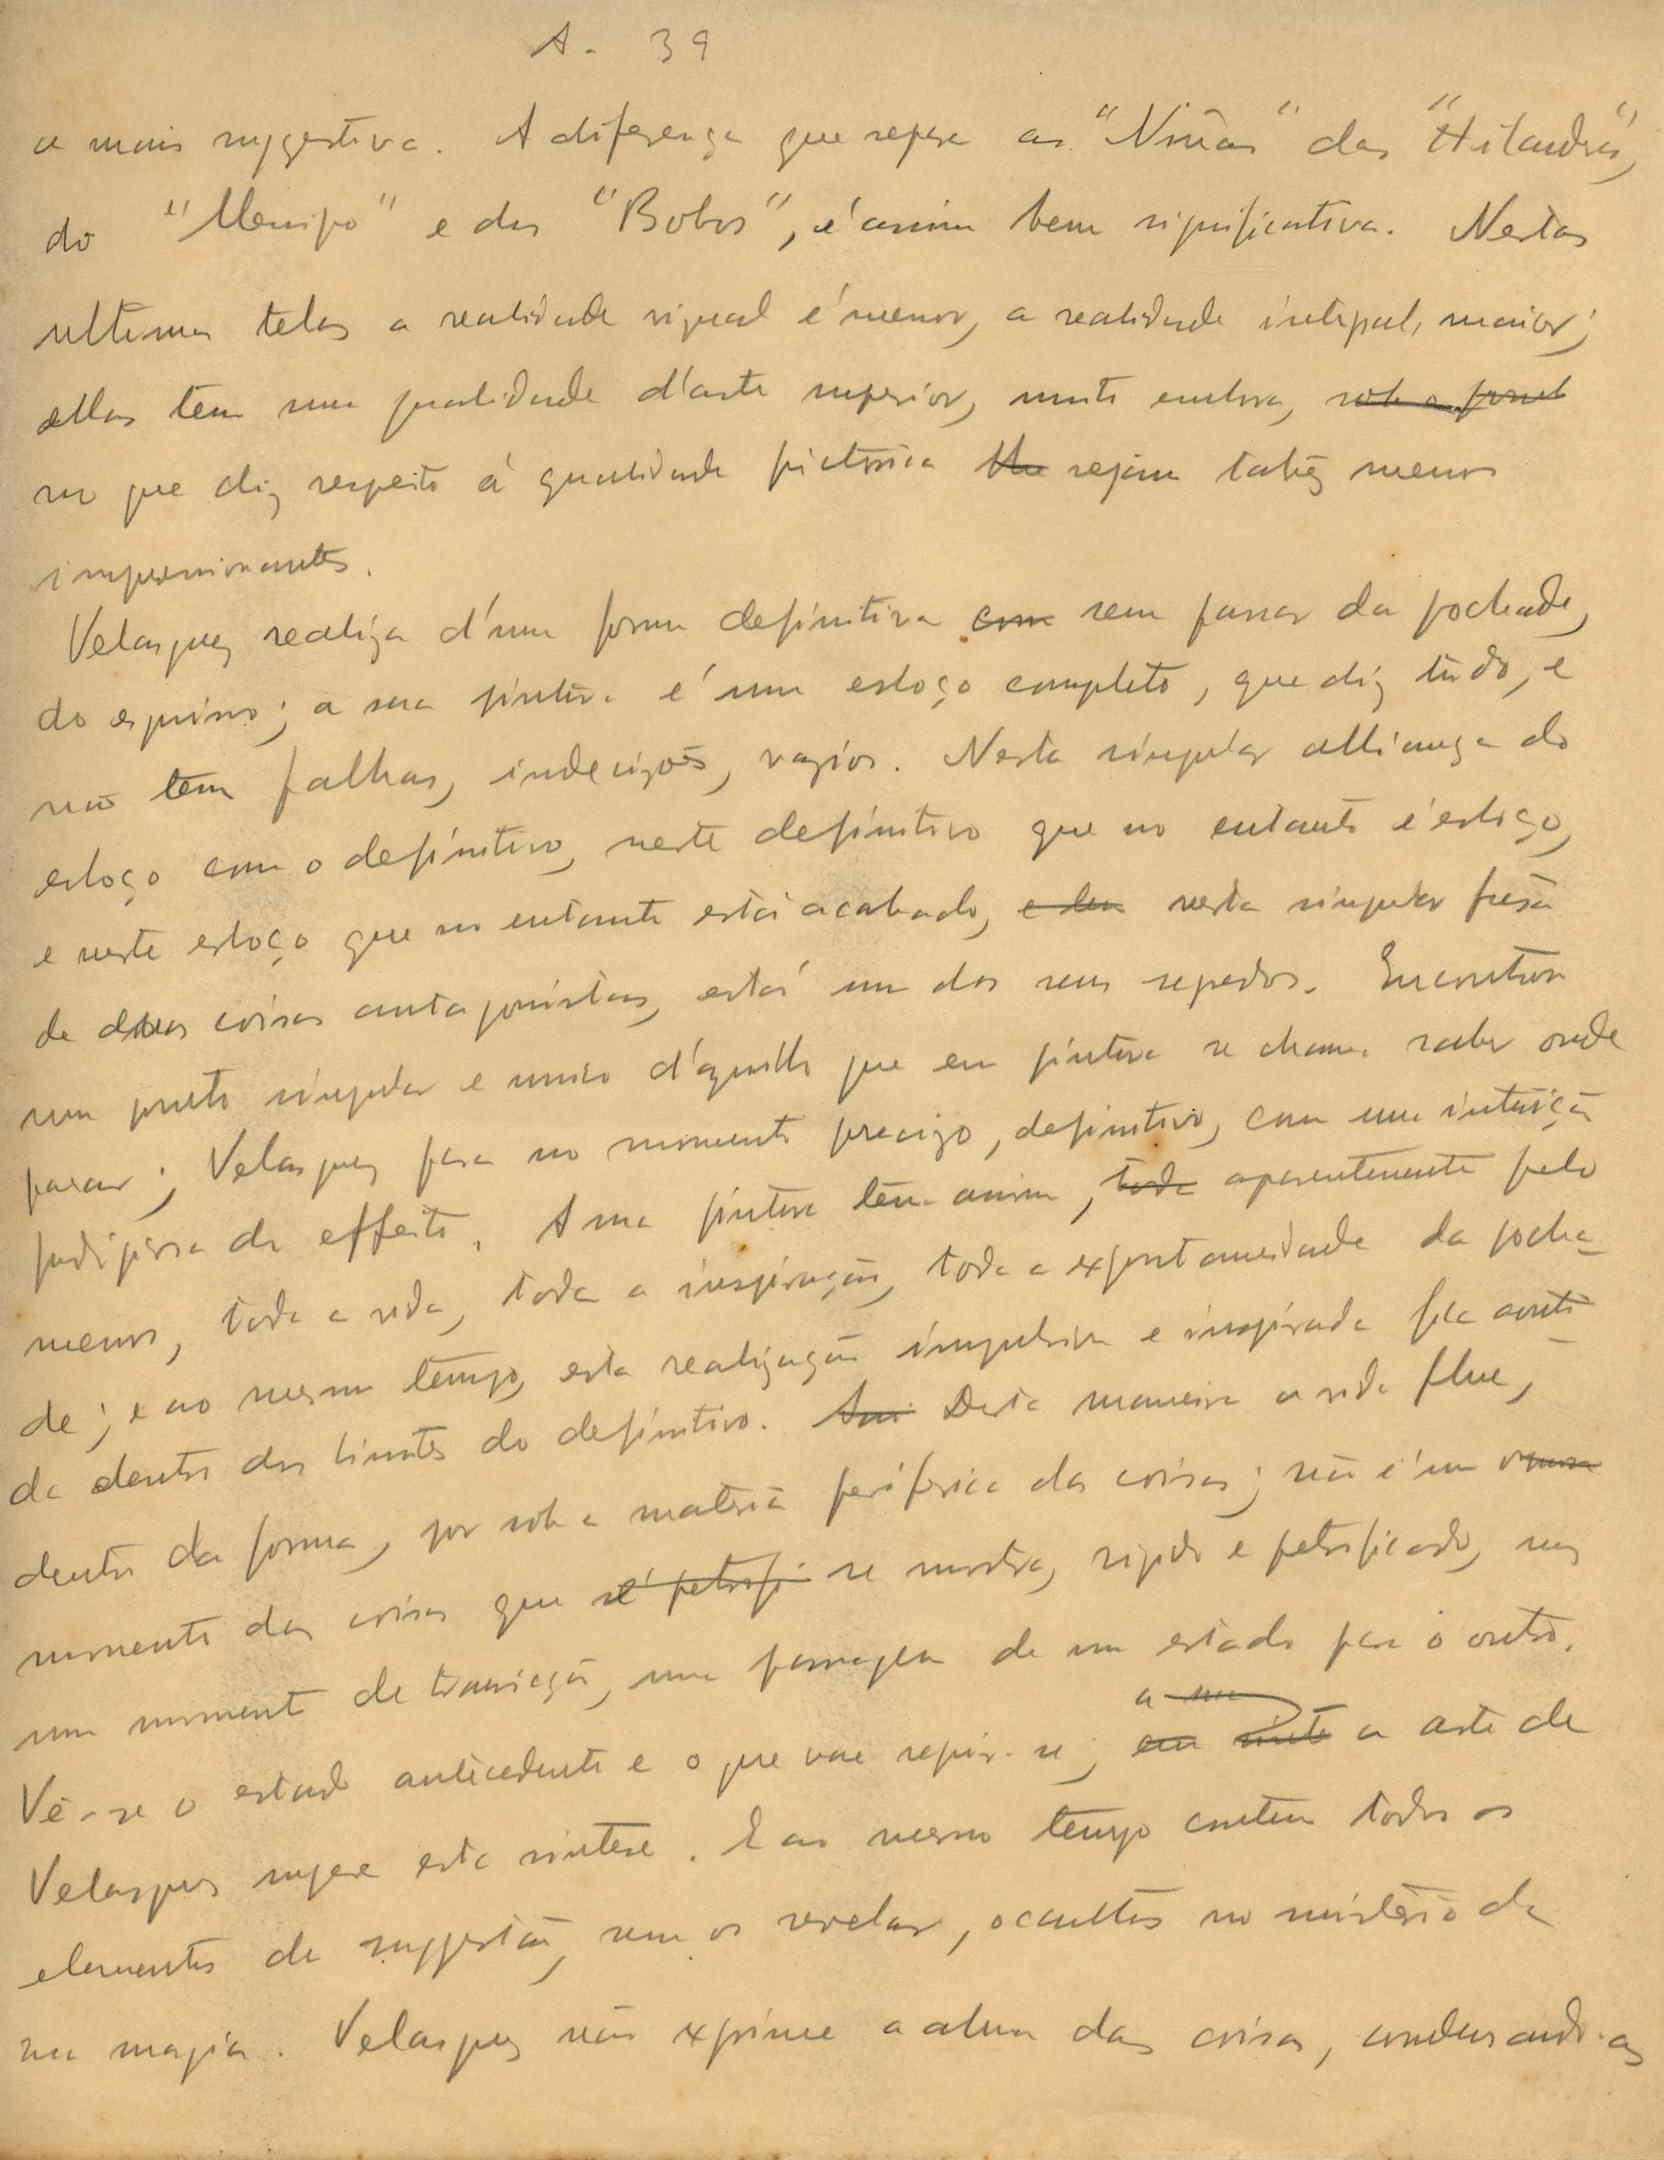 A. 39
a mais suggestiva. A diferença que separa as "Niñas" das "Hilanderas",
do "Menipo" e dos "Bobos", é assim bem significativa. Nestas
ultimas telas a realidade visual é menor, a realidade integral, maior;
ellas tem uma qualidade d'arte superior, muito embora, sob o ponto
no que diz respeito á qualidade pictorica sejam talvez menos
impressionantes.
Velasquez realiza d'uma forma definitiva com sem passar da pochade,
do esquisso; a sua pintura é um esboço completo, que diz tudo, e
não tem falhas, indecizões, vazios. Nesta singular alliança do
esboço com o definitivo, neste definitivo que no entanto é esboço,
e neste esboço que no entanto está acabado, nesta singular fusão
de duas coisas antagonistas, está um dos seus segredos. Encontrou
um ponto singular e unico d'aquillo que em pintura se chama saber onde
parar; Velasquez para no momento precizo, definitivo, com uma intuição
prodigiosa do effeito. A sua pintura tem assim, toda aparentemente pelo
menos, toda a vida, toda a inspiração, toda a expontaneidade da pocha-
de; e ao mesmo tempo, esta realização impulsiva e inspirada fica conti-
da dentro dos limites do definitivo. Assi Desta maneira a vida flue,
dentro da forma, por sob a materia periferica das coisas; não é um
momento das coisas que se petrifi se mostra, rigido e petrificado, mas
um momento de transição, uma passagem de um estado para o outro.
a sua
Vê-se o estado antecedente e o que vae seguir-se; a arte de
Velasquez sugere esta sintese. E ao mesmo tempo contem todos os
elementos de suggestão, sem os revelar, occultos no misterio da
sua magia. Velasquez não exprime a alma das coisas, condensando-as